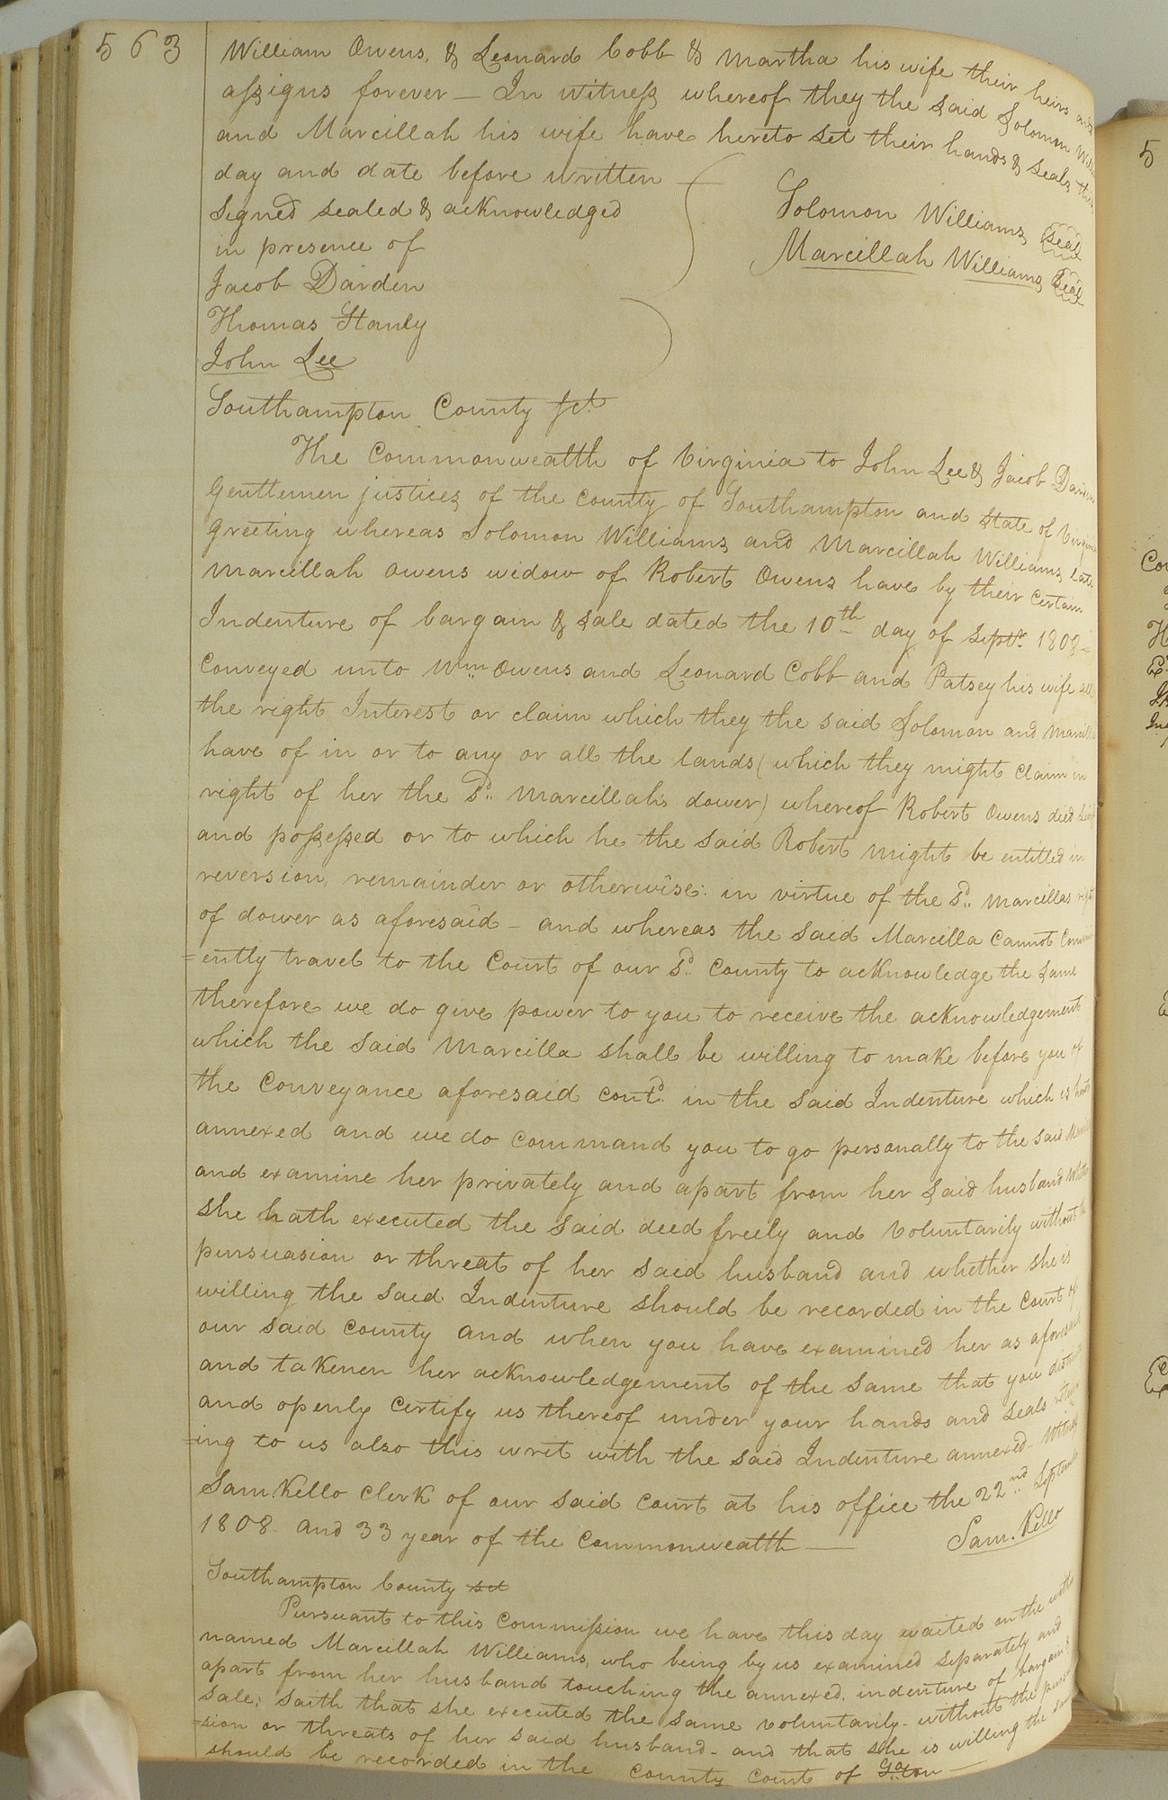 563
William Owens, & Leonard Cobb & Martha his wife their heirs and
assigns forever — In witness whereof they the said Solomon
and Marcillah his wife have hereto set their hands & seals this
day and date before written
Signed sealed & acknowledged
in presence of
Solomon Williams seal
Marcillah Williams seal
Jacob Darden
Thomas Stanly
John Lee
Southampton County sct
The Commonwealth of Virginia to John Lee & Jacob Darden
Gentlemen justices of the county of Southampton and state of Virginia
greeting whereas Solomon Williams and Marcillah Williams late
Marcillah Owens widow of Robert Owens have by their certain
Indenture of bargain & sale dated the 10th day of Septr. 1808
Conveyed unto Wm. Owens and Leonard Cobb and Patsey his wife all
the right Interest or claim which they the said Solomon and
have of in or to any or all the lands (which they might claim in
right of her the sd. Marcillah's dower) whereof Robert Owens died
and possessed or to which he the said Robert might be entitled in
reversion, remainder or otherwise: in virtue of the sd. Marcillas right
of dower as aforesaid - and whereas the said Marcilla cannot
=ently travel to the Court of our sd. County to acknowledge the same
therefore we do give power to you to receive the acknowledgement
which the said Marcilla shall be willing to make before you of
the Conveyance aforesaid contd. in the said Indenture which is
annexed and we do command you to go personally to the said
and examine her privately and apart from her said husband
she hath executed the said deed freely and voluntarily without the
pursuasion or threat of her said husband and whether she is
willing the said Indenture should be recorded in the Court of
our said County and when you have examined her as aforesaid
and takenen her acknowledgement of the same that you
and openly certify us thereof under your hands and seals
=ing to us also this writ with the said Indenture annexed. Witness
Sam Kello clerk of our said court at his office the 22nd September
1808. and 33 year of the Commonwealth —
Sam. Kello
Southampton County sct
Pursuant to this Commission we have this day waited on the
named Marcillah Williams, who being by us examined separately and
apart from her husband touching the annexed indenture of bargain &
Sale; saith that she executed the same voluntarily - without the
=sion or threats of her said husband - and that she is willing the same
should be recorded in the County Court of